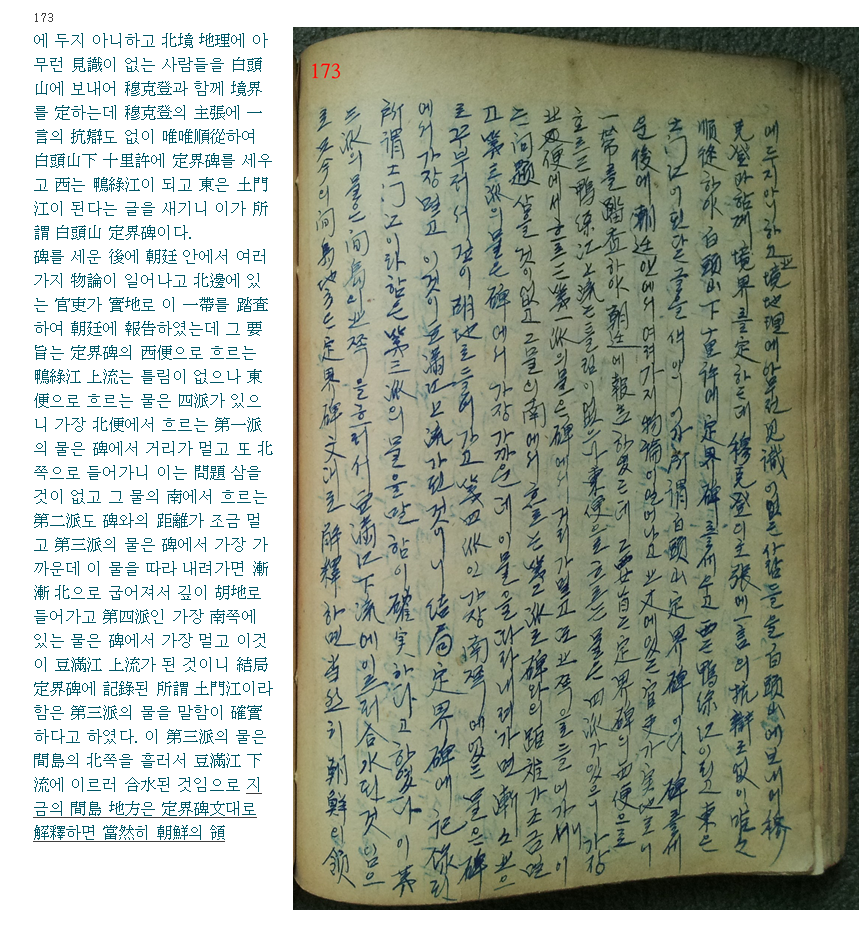 173
에 두지 아니하고 北境 地理에 아
무런 見識이 없는 사람들을 白頭
山에 보내어 穆克登과 함께 境界
를 定하는데 穆克登의 主張에 一
言의 抗辯도 없이 唯唯順從하여
白頭山下 十里許에 定界碑를 세우
고 西는 鴨綠江이 되고 東은 土門
江이 된다는 글을 새기니 이가 所
謂 白頭山 定界碑이다.
碑를 세운 後에 朝廷 안에서 여러
가지 物論이 일어나고 北邊에 있
는 官吏가 實地로 이 一帶를 踏査
하여 朝廷에 報告하였는데 그 要
旨는 定界碑의 西便으로 흐르는
鴨綠江 上流는 틀림이 없으나 東
便으로 흐르는 물은 四派가 있으
니 가장 北便에서 흐르는 第一派
의 물은 碑에서 거리가 멀고 또 北
쪽으로 들어가니 이는 問題 삼을
것이 없고 그 물의 南에서 흐르는
第二派도 碑와의 距離가 조금 멀
고 第三派의 물은 碑에서 가장 가
까운데 이 물을 따라 내려가면 漸
漸 北으로 굽어져서 깊이 胡地로
들어가고 第四派인 가장 南쪽에
있는 물은 碑에서 가장 멀고 이것
이 豆滿江 上流가 된 것이니 結局
定界碑에 記錄된 所謂 土門江이라
함은 第三派의 물을 말함이 確實
하다고 하였다. 이 第三派의 물은
間島의 北쪽을 흘러서 豆滿江 下
流에 이르러 合水된 것임으로 지
금의 間島 地方은 定界碑文대로
解釋하면 當然히 朝鮮의 領
173
에 두지 아니하고 北境地理에 아무런 見識이 없는 사람들을 白頭山에 보내어 穆
克登과 함께 境界를 定하는데 穆克登의 主張에 一言의 抗辯도 없이 唯々
順從하야 白頭山下 十里許에 定界碑를 세우고 西은 鴨綠江이 되고 東은
土門江이 된다는 글을 색이니 이가 所謂 白頭山 定界碑이다 碑를 세
운 後에 朝廷 안에서 여러가지 物論이 일어나고 北邊에 있는 官吏가 実地로 이
一帶를 踏査하야 朝廷에 報告하였는데 그 要旨는 定界碑의 西便으로
흐르는 鴨綠江 上流는 틀림이 없으나 東便으로 흐르는 물은 四派가 있으니 가장
北便에서 흐르는 第一派의 물은 碑에서 거리가 멀고 또 北쪽으로 들어가니 이
는 問題 삼을 것이 없고 그 물의 南에서 흐르는 第二派도 碑와의 距離가 조금 멀
고 第三派의 물은 碑에서 가장 가까운데 이 물을 따라 내려가면 漸々 北으
로 꾸부러저서 깊이 胡地로 들어가고 第四派인 가장 南쪽에 있는 물은 碑
에서 가장 멀고 이것이 豆滿江 上流가 된 것이니 結局 定界碑에 記錄된
所謂 土門江이라 함은 第三派의 물을 말함이 確実하다고 하였다 이 第
三派의 물은 間島의 北쪽을 흘러서 豆滿江 下流에 이르러 合水된 것임으
로 只今의 間島地方은 定界碑文대로 解釋하면 當然히 朝鮮의 領